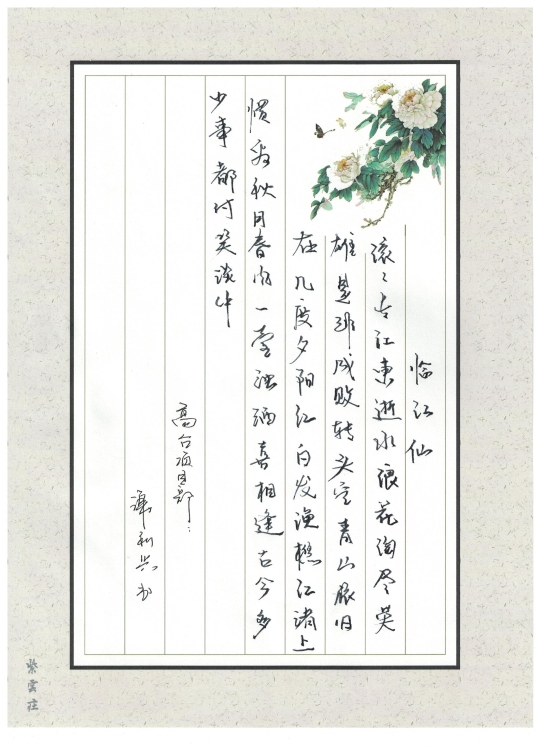 临江仙
滚〻长江東逝水浪花淘尽英
雄是非成败转头空青山依旧
在几度夕阳红白发渔樵江渚上
惯看秋月春风一壶浊酒喜相逢古今多
少事都付笑谈中
高台项目部：
谢利兴书
紫雲莊